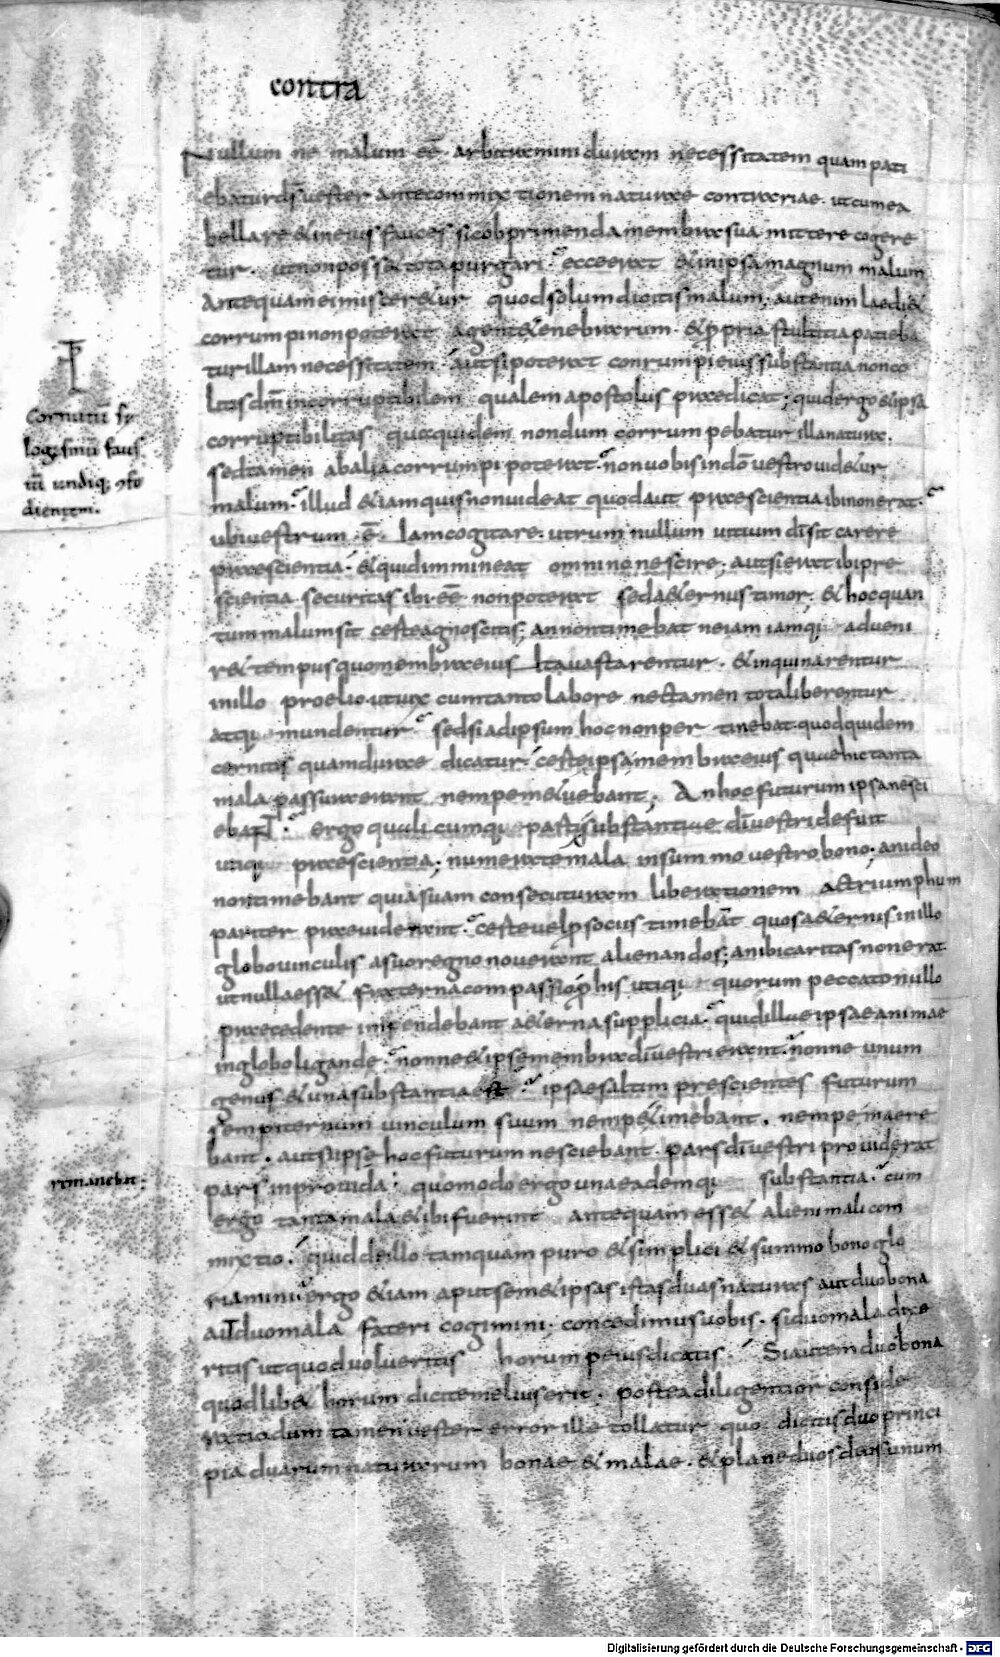 contra
Nullum ne malum eē arbitramini duram necessitatem quam pati
ebatur ds̄ uester ante commixtionem naturae contrariae. ut cum ea
bellare & in eius fauces sic obprimenda membra sua mittere cogere
tur. ut non poss& tota purgari. ecce erat & in ipsa magnum malum
antequam ei miscer&ur quod solum dicitis malum; aut enim laedi &
corrumpi non poterat a gente tenebrarum. & propria stultitia patieba
tur illam necessitatem. aut si poterat conrumpi eius substantia non co
litis dm̄ incorruptibilem qualem apostolus praedicat; quid ergo & ipsa
corruptibilitas qua quidem nondum corrumpebatur illa natura.
sed tamen ab alia corrumpi poterat. non uobis in dō uestro uid&ur
malum. illud &iam quis non uideat quod aut praescientia ibi non erat.
ubi uestrum ē. Iam cogitare. utrum nullum uitium dī sit carere
praescientia. & quid immineat omnino nescire; aut si erat ibi pre
scientia securitas ibi eē non poterat sed a&ernus timor. & hoc quan
tum malum sit certe agnoscitis; an non timebat ne iam iamq; adueni
r& tempus quo membra eius ita uastarentur. & inquinarentur
in illo proelio. ut uix cum tanto labore nec tamen tota liberentur
atq; mundentur sed si ad ipsum hoc non pertinebat. quod quidem
cernitis quam dure dicatur. certe ipsa membra eius quae hic tanta
mala passura erant nempe m&uebant; An hoc futurum ipsa nesci
ebant. ergo qualicumq; parti substantiae dī uestri defuit
utiq; praescientia; numera tot mala in summo uestro bono; an ideo
non timebant quia suam consecuturam liberationem ac triumphum
pariter praeuiderant. certe uel p̱ sociis timebāt quos a&ernis in illo
globo uinculis a suo regno nouerant alienandos; an ibi caritas non erat
ut nulla ess& fraterna compassio p̱ his utiq; quorum peccato nullo
praecedente impendebant a&erna supplicia. quid illae ipsae animae
in globo ligandae. nonne & ipse membra dī uestri erant. nonne unum
genus & una substantia est ipsae saltim prescientes futurum
sempiternum uinculum suum nempe timebant. nempe maere
bant. aut si ipsę hoc futurum nesciebant. pars dī uestri prouiderat
pars inprouida; quomodo ergo una eademq; substantia. cum
ergo tanta mala & ibi fuerint antequam ess& alieni mali com
mixtio. quid de illo tamquam puro & simplici & summo bono glo
riamini ergo &iam aput sem&ipsas istas duas naturas aut duo bona
aut duo mala fateri cogimini; concedimus uobis. si duo mala dixe
ritis ut quod uolueritis horum peius dicatis. Si autem duo bona
quodlib& horum dicite melius erit. postea diligentior conside
ratio dum tamen uester error ille tollatur quo dicitis duo princi
pia duarum naturarum bonae & malae. & plane duos deos unum
Cornutū sy
logismū faus
tū undiq; cōfo
dientem.
remanebit;
Digitalisierung gefördert durch die Deutsche Forschungsgemeinschaft - DFG